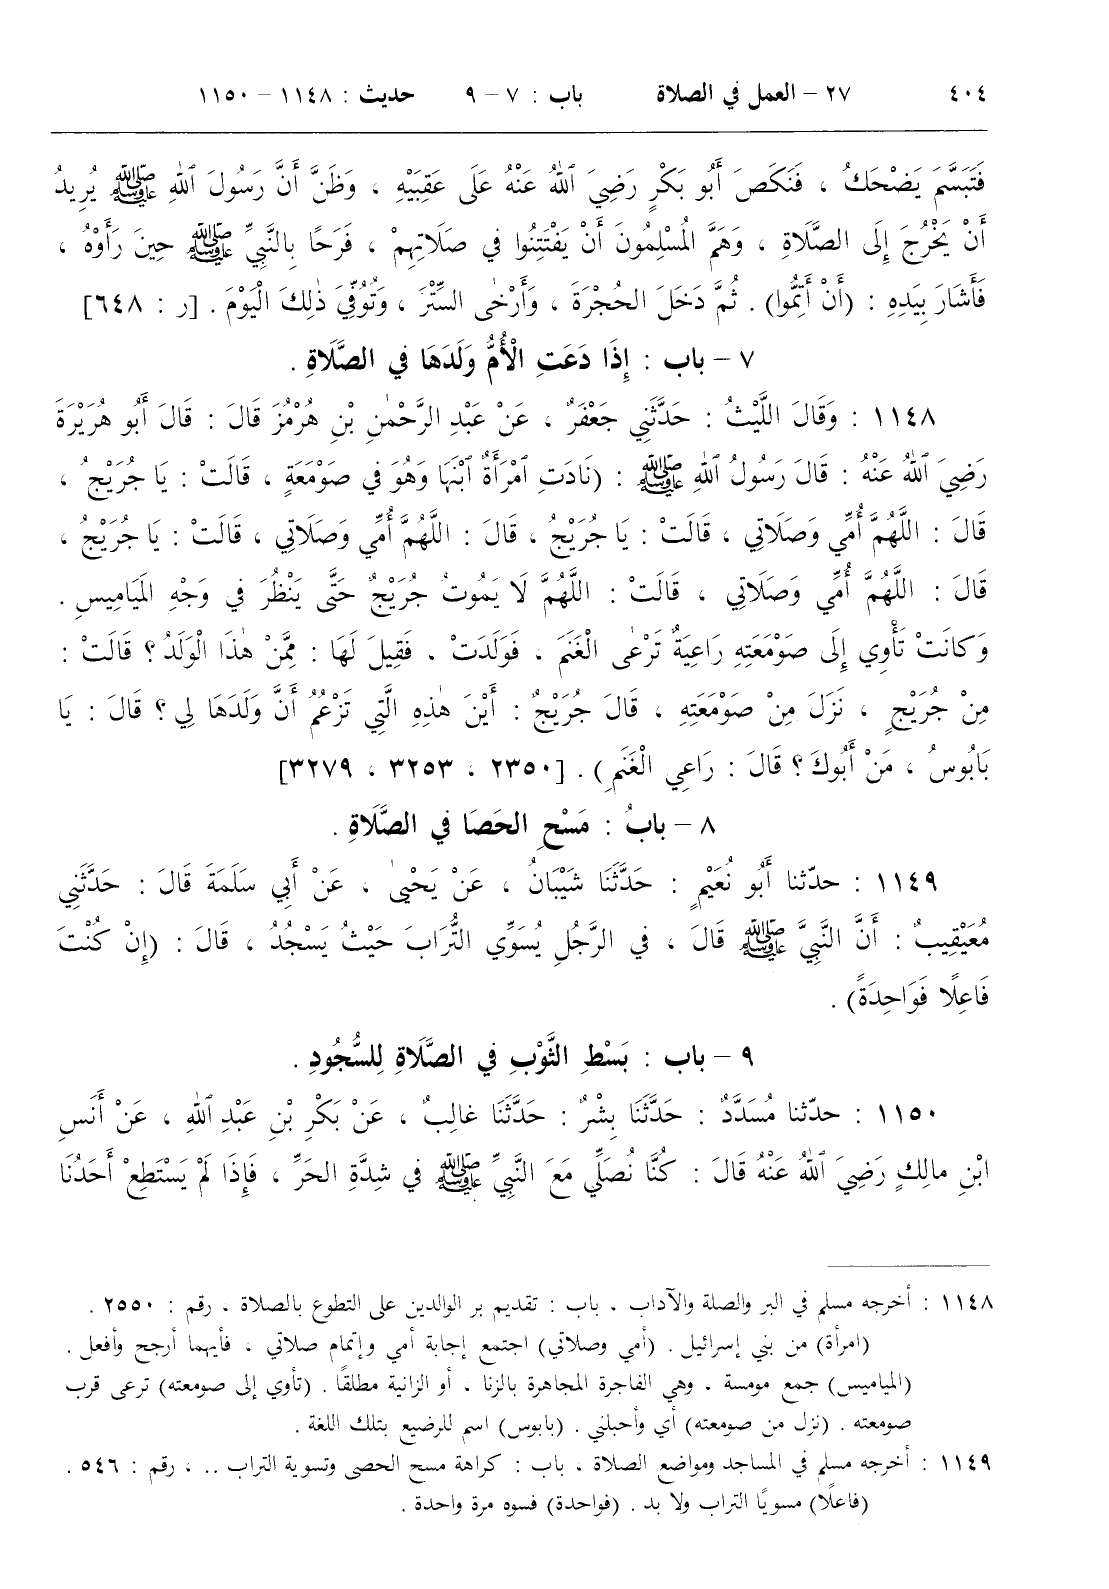 ٤٠٤ ٢٧ – العمل في الصلاة باب : ٧ – ٩ حديث : ١١٤٨ – ١١٥٠
فَتَبَسَّمَ يَضْحَكُ ، فَنَكَصَ أَبُو بَكْرٍ رَضِيَ ٱللهُ عَنْهُ عَلَى عَقِبَيْهِ ، وَظَنَّ أَنَّ رَسُولَ ٱللهِ ﷺ يُرِيدُ
أَنْ يَخْرُجَ إِلَى الصَّلَاةِ ، وَهَمَّ الْمُسْلِمُونَ أَنْ يَفْتَتِنُوا فِي صَلَاتِهِمْ ، فَرَحًا بِالنَّبِيِّ ﷺ حِينَ رَأَوْهُ ،
فَأَشَارَ بِيَدِهِ : (أَنْ أَتِمُّوا) . ثُمَّ دَخَلَ الحُجْرَةَ ، وَأَرْخٰى السِّتْرَ ، وَتُوُفِّيَ ذٰلِكَ الْيَوْمَ . [ر : ٦٤٨]
٧ – باب : إِذَا دَعَتِ الْأُمُّ وَلَدَهَا فِي الصَّلَاةِ .
١١٤٨ : وَقَالَ اللَّيْثُ : حَدَّثَنِي جَعْفَرٌ ، عَنْ عَبْدِ الرَّحْمٰنِ بْنِ هُرْمُزَ قَالَ : قَالَ أَبُو هُرَيْرَةَ
رَضِيَ ٱللهُ عَنْهُ : قَالَ رَسُولُ ٱللهِ ﷺ : (نَادَتِ ٱمْرَأَةٌ ٱبْنَهَا وَهُوَ فِي صَوْمَعَةٍ ، قَالَتْ : يَا جُرَيْجُ ،
قَالَ : اللَّهُمَّ أُمِّي وَصَلَاتِي ، قَالَتْ : يَا جُرَيْجُ ، قَالَ : اللَّهُمَّ أُمِّي وَصَلَاتِي ، قَالَتْ : يَا جُرَيْجُ ،
قَالَ : اللَّهُمَّ أُمِّي وَصَلَاتِي ، قَالَتْ : اللَّهُمَّ لَا يَمُوتُ جُرَيْجٌ حَتَّى يَنْظُرَ فِي وَجْهِ المَيَامِيسِ .
وَكانَتْ تَأْوِي إِلَى صَوْمَعَتِهِ رَاعِيَةٌ تَرْعٰى الْغَنَمَ ، فَوَلَدَتْ ، فَقِيلَ لَهَا : مِمَّنْ هٰذَا الْوَلَدُ ؟ قَالَتْ :
مِنْ جُرَيْجٍ ، نَزَلَ مِنْ صَوْمَعَتِهِ ، قَالَ جُرَيْجٌ : أَيْنَ هٰذِهِ الَّتِي تَزْعُمُ أَنَّ وَلَدَهَا لِي ؟ قَالَ : يَا
بَابُوسُ ، مَنْ أَبُوكَ ؟ قَالَ : رَاعِي الْغَنَمِ) . [٢٣٥٠ ، ٣٢٥٣ ، ٣٢٧٩]
٨ – بابُ : مَسْحِ الحَصَا فِي الصَّلَاةِ .
١١٤٩ : حدّثنا أَبُو نُعَيْمٍ : حَدَّثَنَا شَيْبَانُ ، عَنْ يَحْيىٰ ، عَنْ أَبِي سَلَمَةَ قَالَ : حَدَّثَنِي
مُعَيْقِيبٌ : أَنَّ النَّبِيَّ ﷺ قَالَ ، فِي الرَّجُلِ يُسَوِّي التُّرَابَ حَيْثُ يَسْجُدُ ، قَالَ : (إِنْ كُنْتَ
فَاعِلًا فَوَاحِدَةً) .
٩ – باب : بَسْطِ الثَّوْبِ فِي الصَّلَاةِ لِلسُّجُودِ .
١١٥٠ : حدّثنا مُسَدَّدٌ : حَدَّثَنَا بِشْرٌ : حَدَّثَنَا غالِبٌ ، عَنْ بَكْرِ بْنِ عَبْدِ ٱللهِ ، عَنْ أَنَسِ
ابْنِ مالِكٍ رَضِيَ ٱللهُ عَنْهُ قَالَ : كُنَّا نُصَلِّي مَعَ النَّبِيِّ ﷺ فِي شِدَّةِ الحَرِّ ، فَإِذَا لَمْ يَسْتَطِعْ أَحَدُنَا
١١٤٨ : أخرجه مسلم في البر والصلة والآداب ، باب : تقديم بر الوالدين على التطوع بالصلاة ، رقم : ٢٥٥٠ .
(امرأة) من بني إسرائيل . (أمي وصلاتي) اجتمع إجابة أمي وإتمام صلاتي ، فأيهما أرجح وأفعل .
(المياميس) جمع مومسة ، وهي الفاجرة المجاهرة بالزنا ، أو الزانية مطلقًا . (تأوي إلى صومعته) ترعى قرب
صومعته . (نزل من صومعته) أي وأحبلني . (بابوس) اسم للرضيع بتلك اللغة .
١١٤٩ : أخرجه مسلم في المساجد ومواضع الصلاة ، باب : كراهة مسح الحصى وتسوية التراب .. ، رقم : ٥٤٦ .
(فاعلًا) مسويًا التراب ولا بد . (فواحدة) فسوه مرة واحدة .